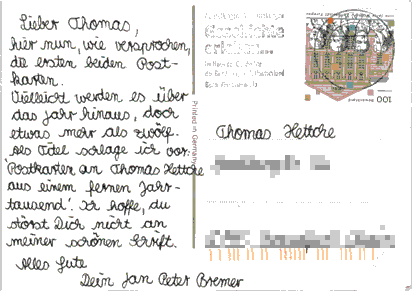 Lieber Thomas,
hier nun, wie versprochen,
die ersten beiden Post-
karten.
Vielleicht werden es über
das Jahr hinaus, doch
etwas mehr als zwölf.
Als Titel schlage ich vor:
'Postkarten an Thomas Hettche
aus einem fernen Jahr-
tausend'. Ich hoffe, du
störst Dich nicht an
meiner schönen Schrift.
Alles Gute
Dein Jan Peter Bremer
Printed in Germany
Geschichte
erleben
100
Thomas Hettche